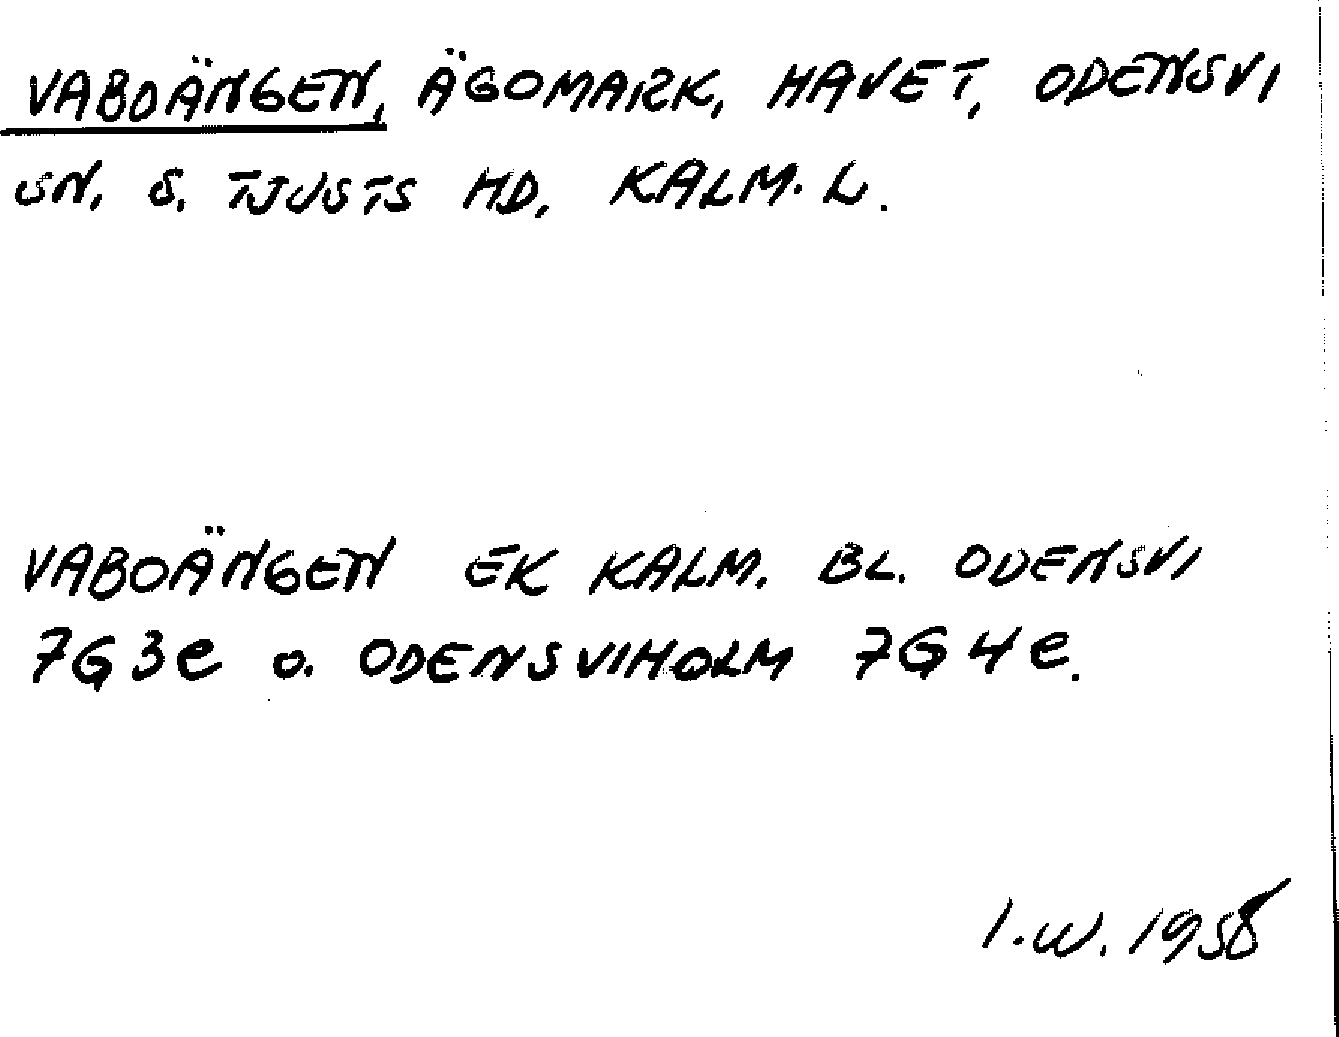 VABOÄNGEN, ÄGOMARK, HAVET, ODENSVI
SN. S. TJUSTS HD. KALM. L.
VABOÄNGEN EK KALM. BL. ODENSVI
7G3e o. ODENSVIHOLM 7G4e.
I.W. 1958